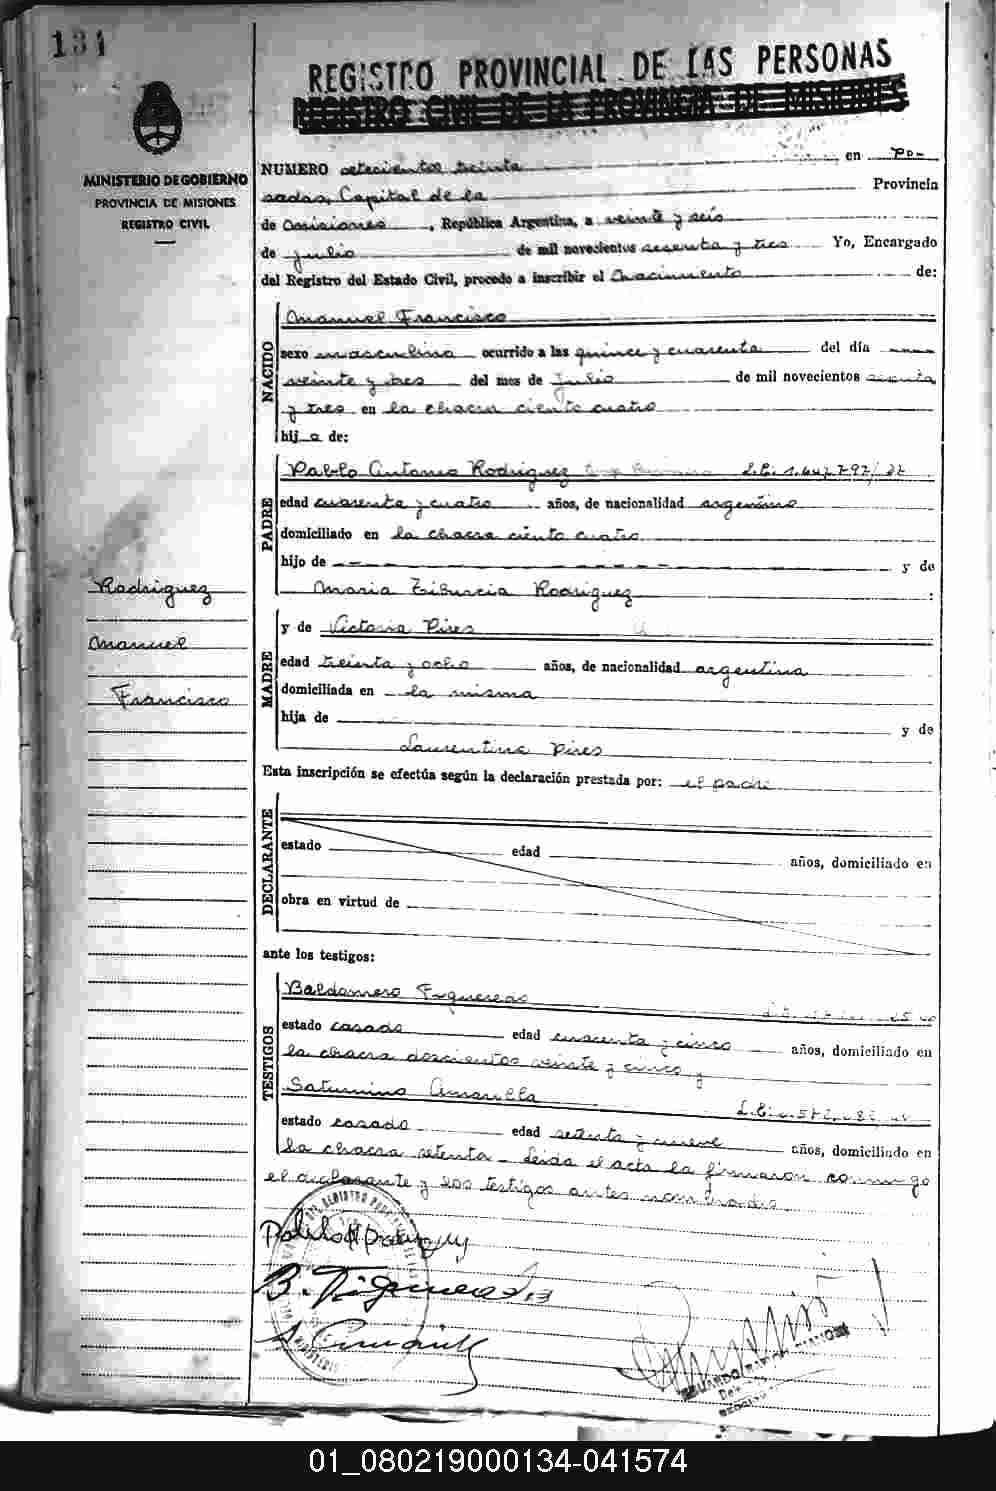 134
REGISTRO PROVINCIAL DE LAS PERSONAS
REGISTRO CIVIL DE LA PROVINCIA DE MISIONES
MINISTERIO DE GOBIERNO
PROVINCIA DE MISIONES
REGISTRO CIVIL
NUMERO setecientos treinta en Po-
sadas, Capital de la Provincia
de Misiones, República Argentina, a veinte y seis
de julio de mil novecientos sesenta y tres Yo, Encargado
del Registro del Estado Civil, procedo a inscribir el Nacimiento de:
NACIDO
Manuel Francisco
sexo masculino ocurrido a las quince y cuarenta del día
veinte y tres del mes de Julio de mil novecientos sesenta
y tres en la chacra ciento cuatro
hijo de:
PADRE
Pablo Antonio Rodriguez
edad cuarenta y cuatro años, de nacionalidad argentino
domiciliado en la chacra ciento cuatro
hijo de y de
Maria Tiburcia Rodriguez :
Rodriguez
Manuel
Francisco
MADRE
y de Victoria Pires
edad treinta y ocho años, de nacionalidad argentina
domiciliada en la misma
hija de y de
Laurentina Pires
Esta inscripción se efectúa según la declaración prestada por: el padre
DECLARANTE
estado edad años, domiciliado en
obra en virtud de
ante los testigos:
TESTIGOS
Baldomero Figueredo
estado casado edad cuarenta y cinco años, domiciliado en
la chacra doscientos veinte y cinco y
Saturnino Amarilla
estado casado edad setenta y nueve años, domiciliado en
la chacra setenta - Leida el acta la firmaron conmigo
el declarante y los testigos antes nombrados
B. Figueredo
01_080219000134-041574